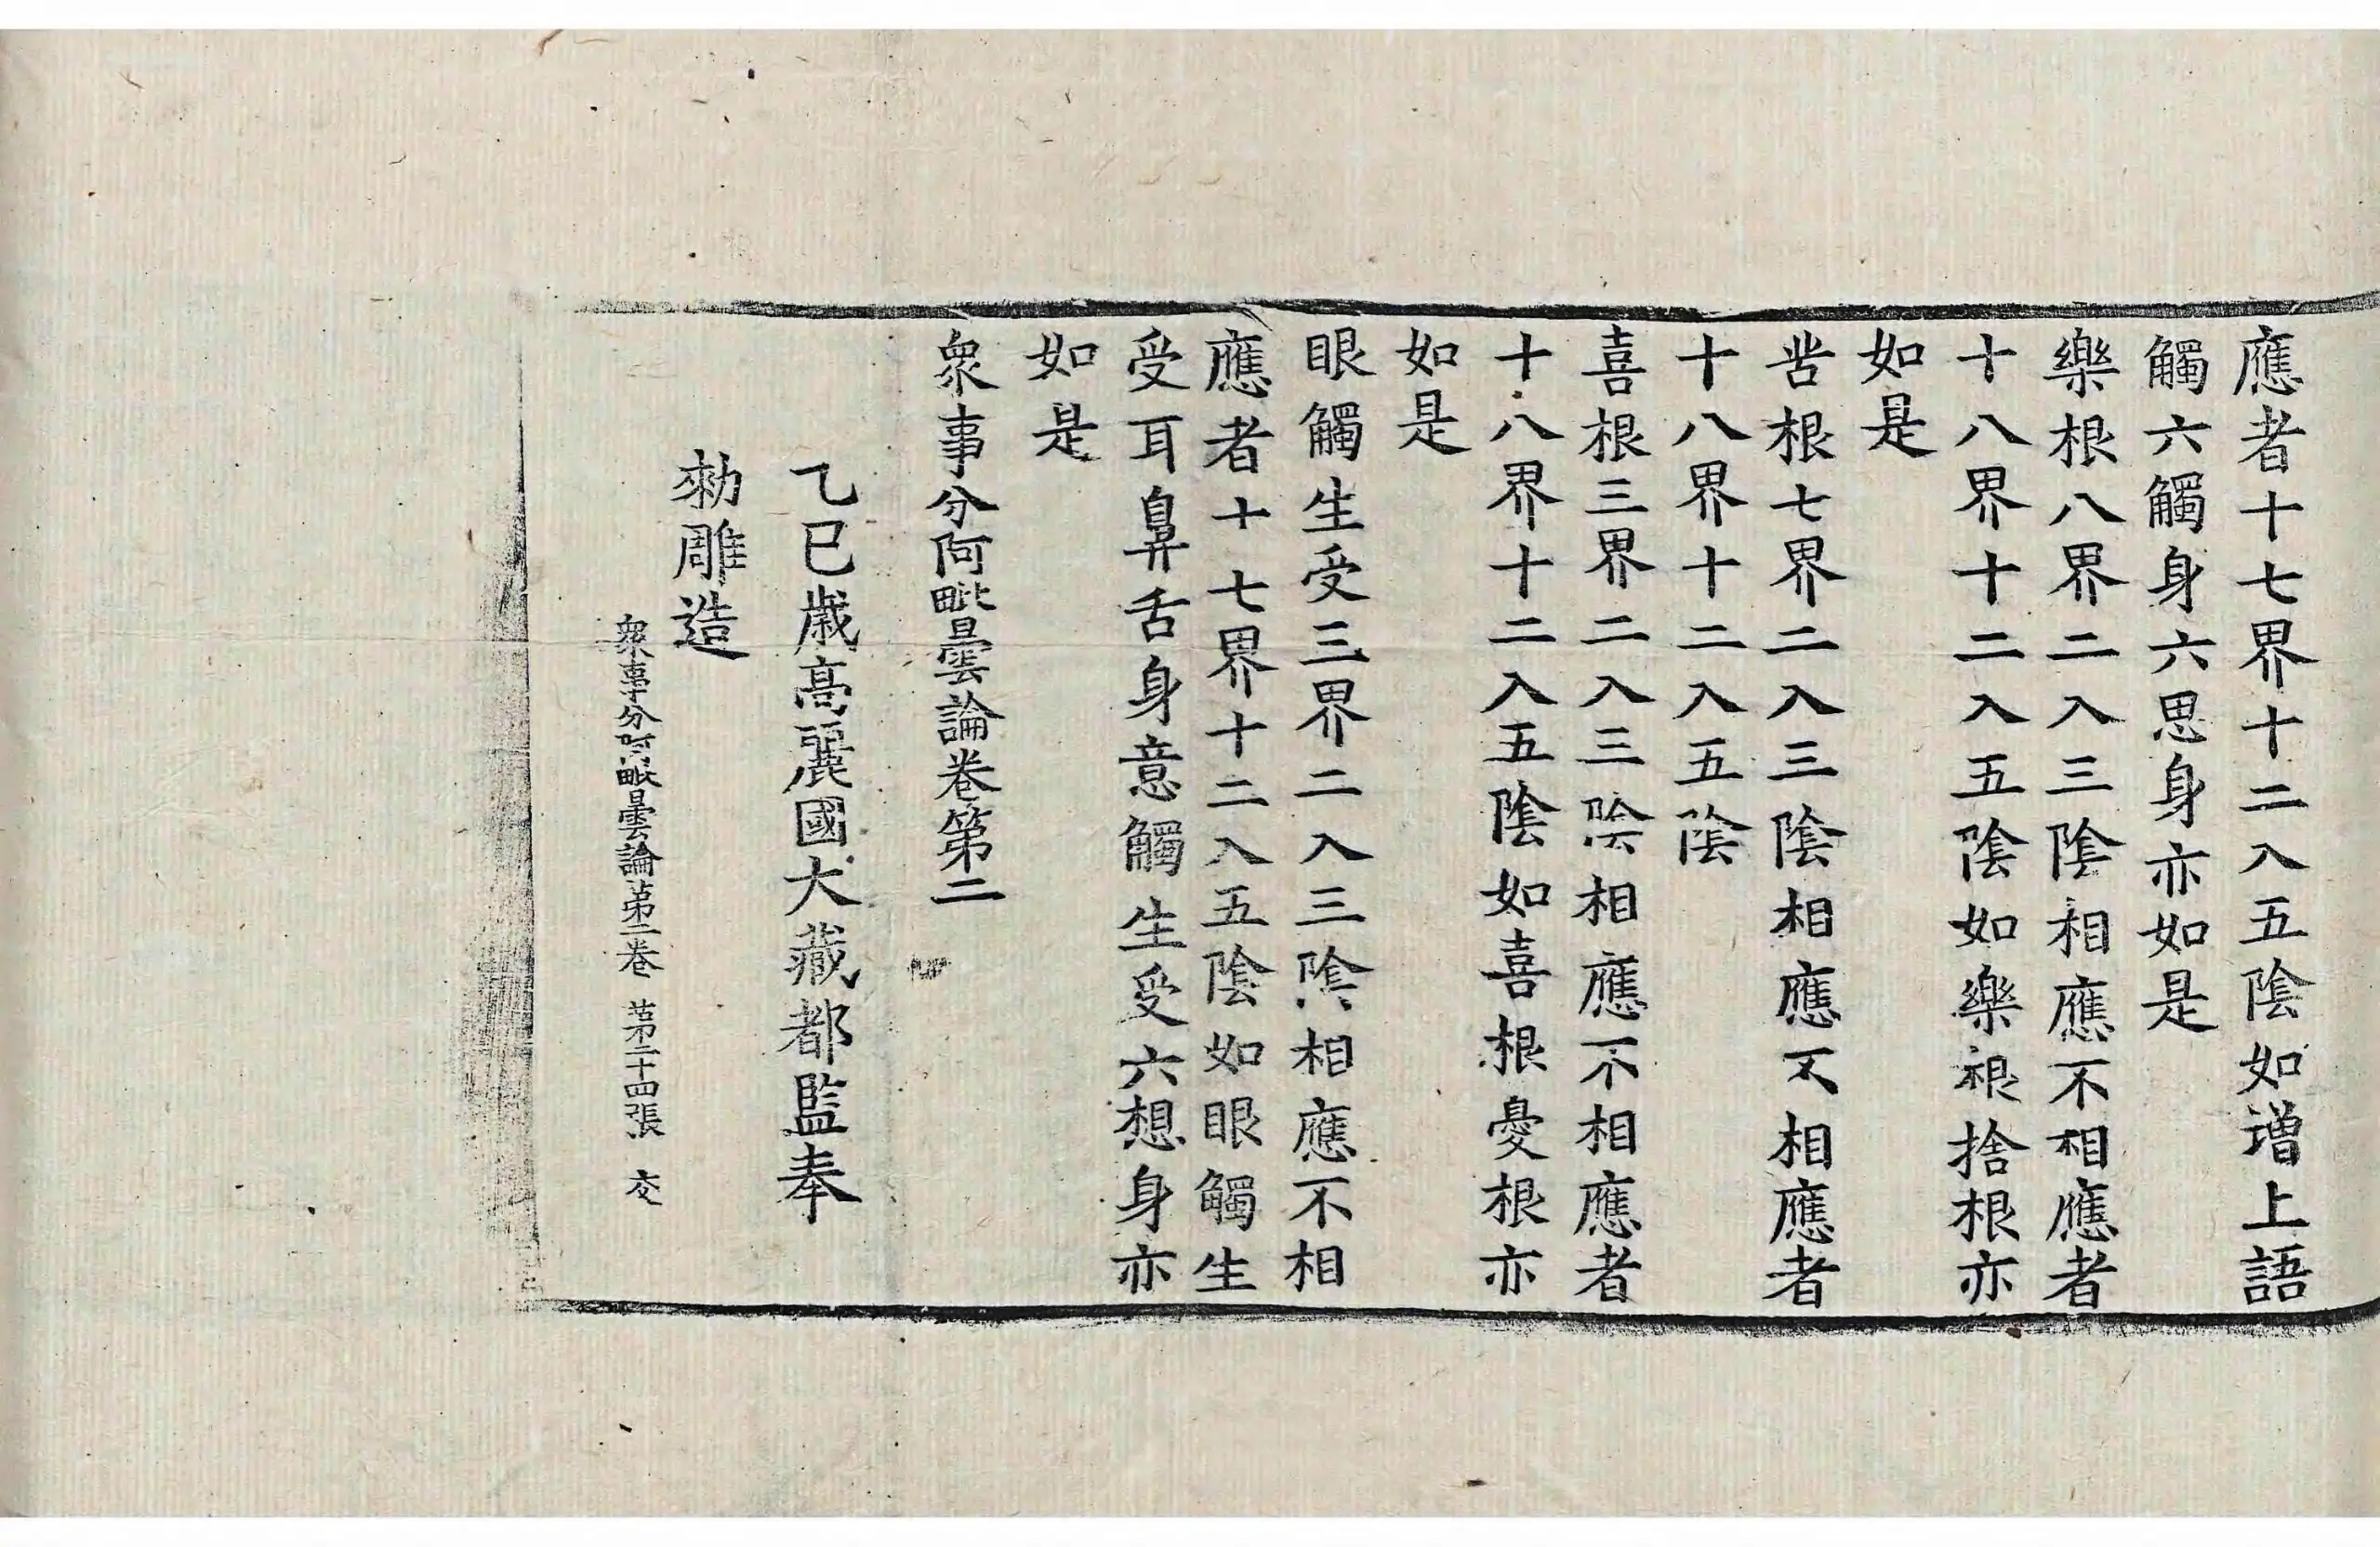 應者十七界十二入五陰如增上語
觸六觸身六思身亦如是
樂根八界二入三陰相應不相應者
十八界十二入五陰如樂根捨根亦
如是
苦根七界二入三陰相應不相應者
十八界十二入五陰
喜根三界二入三陰相應不相應者
十八界十二入五陰如喜根憂根亦
如是
眼觸生受三界二入三陰相應不相
應者十七界十二入五陰如眼觸生
受耳鼻舌身意觸生受六想身亦
如是
衆事分阿毗曇論卷第二
乙巳歲高麗國大藏都監奉
勑雕造
衆事分阿毗曇論第二卷 第二十四張 交